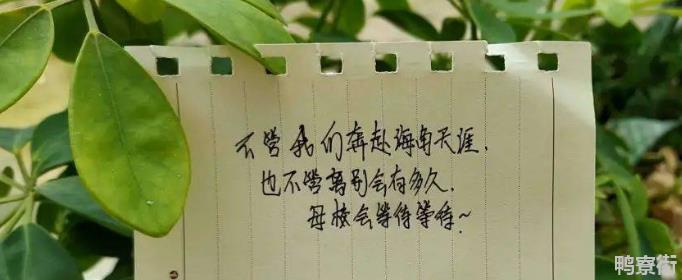 不管我们奔赴海南天涯.
也不管离别会有多久.
母校会等待等待~
鸭寮街